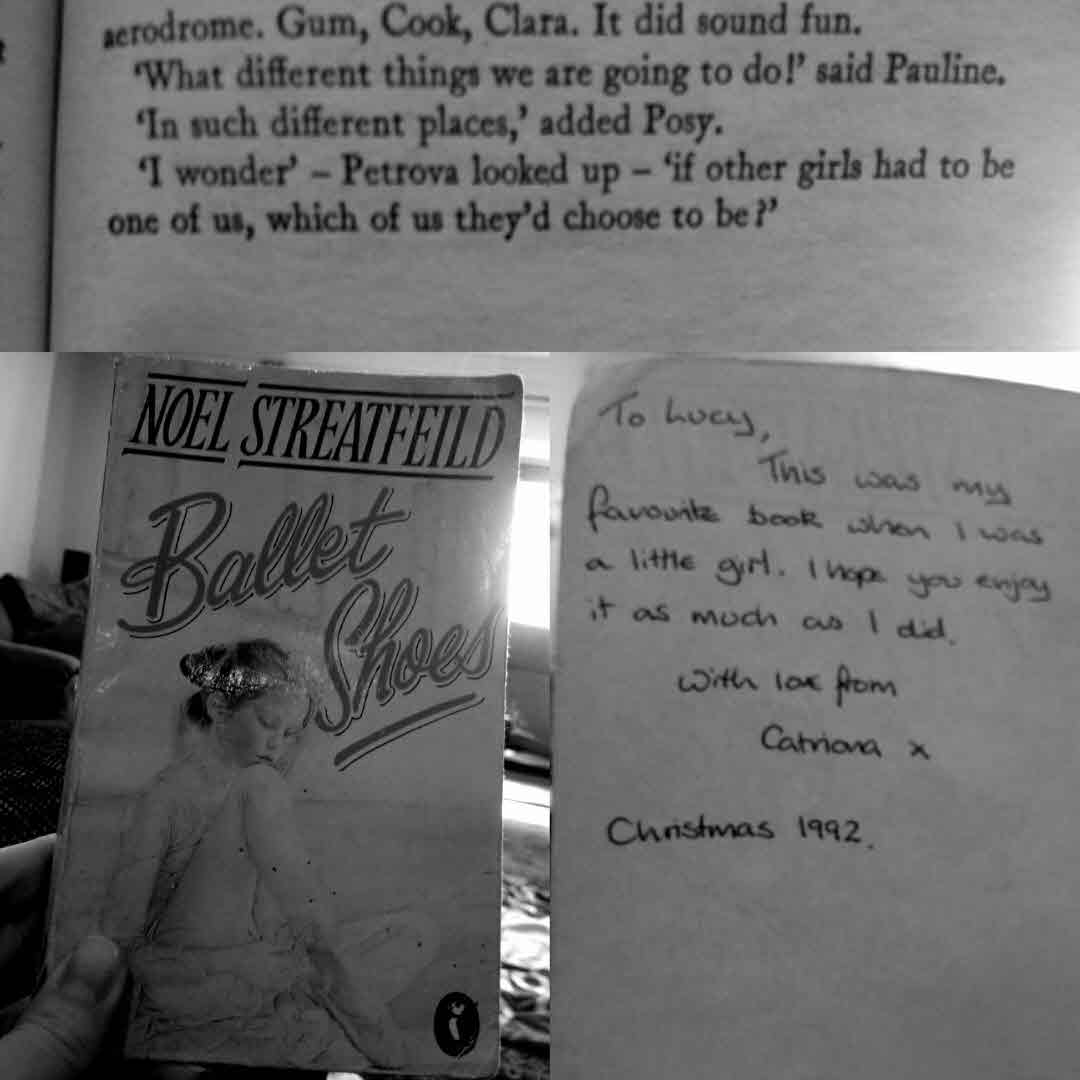 aerodrome. Gum, Cook, Clara. It did sound fun.
‘What different things we are going to do!’ said Pauline.
‘In such different places,’ added Posy.
‘I wonder’ – Petrova looked up – ‘if other girls had to be
one of us, which of us they’d choose to be?’
NOEL STREATFEILD
Ballet
Shoes
To Lucy,
This was my
favourite book when I was
a little girl. I hope you enjoy
it as much as I did.
With love from
Catriona x
Christmas 1992.